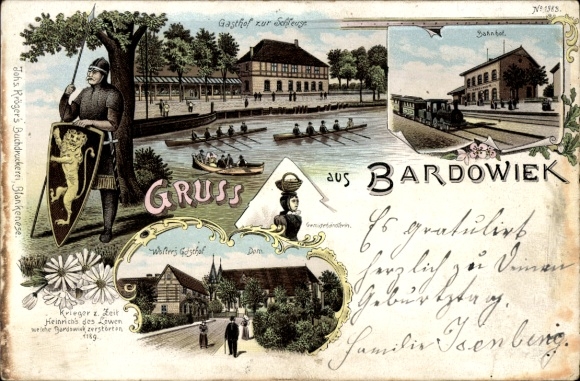 Gasthof zur Schleuse.
No 1989.
Bahnhof.
Johs. Kröger's Buchdruckerei, Blankenese.
GRUSS aus BARDOWIEK
Gemüsehändlerin.
Walter's Gasthof
Dom.
Krieger z. Zeit
Heinrich's des Löwen
welche Bardowiek zerstörten
1189.
Es gratulirt
herzlich zu Deinem
Geburtstag.
Familie Isenberg.